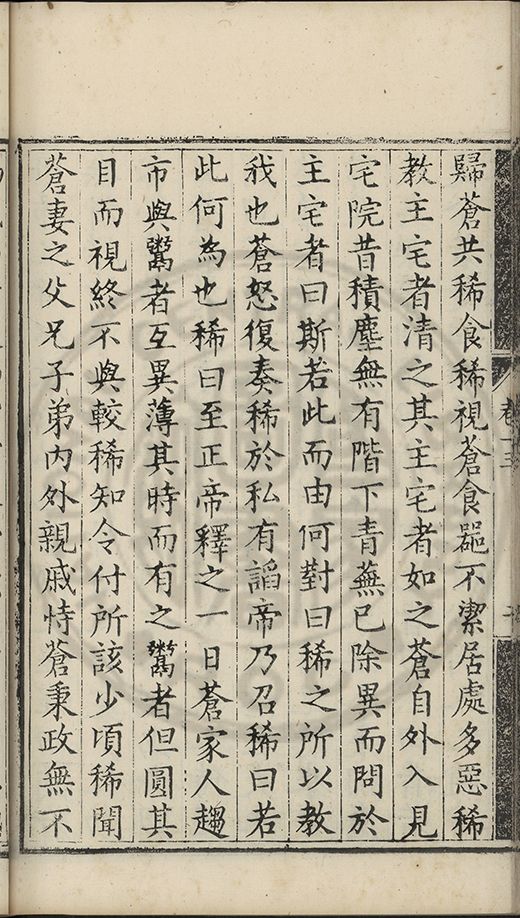 歸蒼共稀食稀視蒼食噐不潔居處多惡稀
教主宅者清之其主宅者如之蒼自外入見
宅院昔積塵無有階下青蕪已除異而問於
主宅者曰斯若此而由何對曰稀之所以教
我也蒼怒復奏稀於私有謟帝乃召稀曰若
此何為也稀曰至正帝釋之一日蒼家人趨
市與鬻者互異薄其時而有之鬻者但圓其
目而視終不與較稀知令付所該少頃稀聞
蒼妻之父兄子弟內外親戚恃蒼秉政無不
卷十三
二